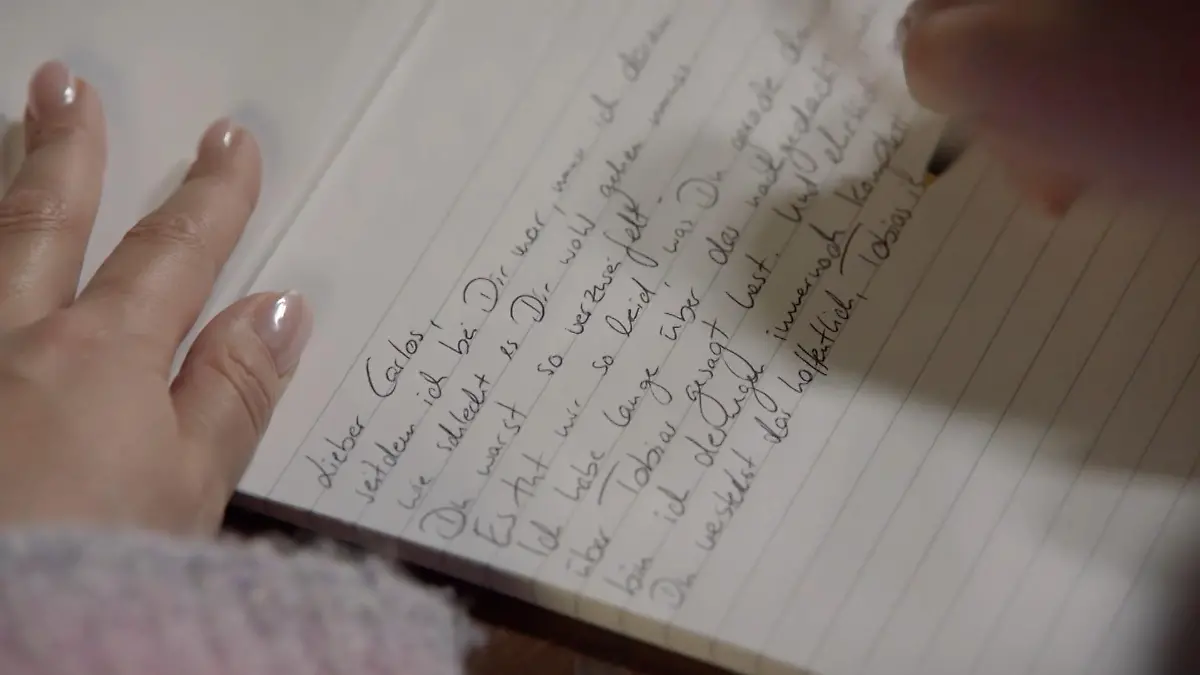 Lieber Carlos,
seitdem ich bei Dir war, muss ich daran
wie schlecht es Dir wohl gehen muss.
Du warst so verzweifelt.
Es tut mir so leid, was Du gerade
Ich habe lange über das nachgedacht
über Tobias gesagt hast. Und ehrlich
bin ich deswegen immer noch
Du verstehst das hoffentlich, Tobias ist